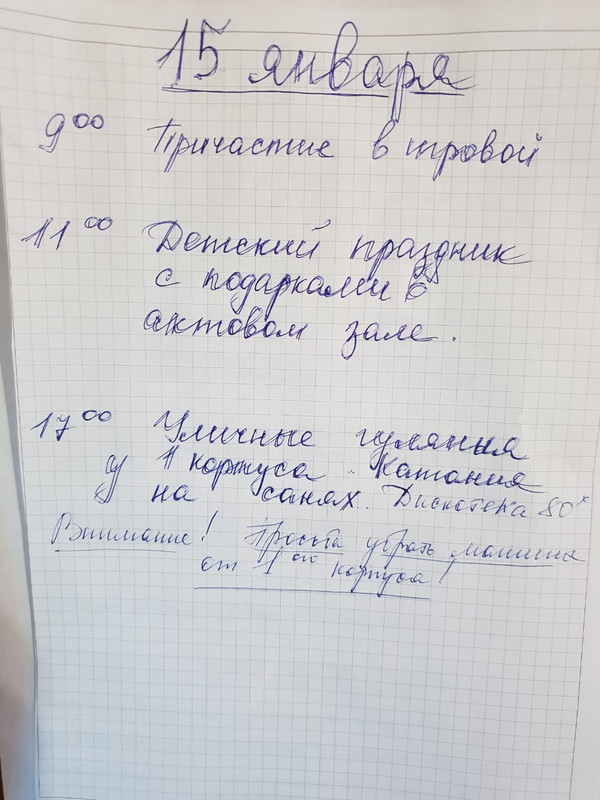 15 января
9 00 Причастие в игровой
11 00 Детский праздник
с подарками в
актовом зале.
17 00 Уличные гуляния
у 1 корпуса. Катания
на санях. Дискотека 80х
Внимание! Просьба убрать машины
от 1ого корпуса!